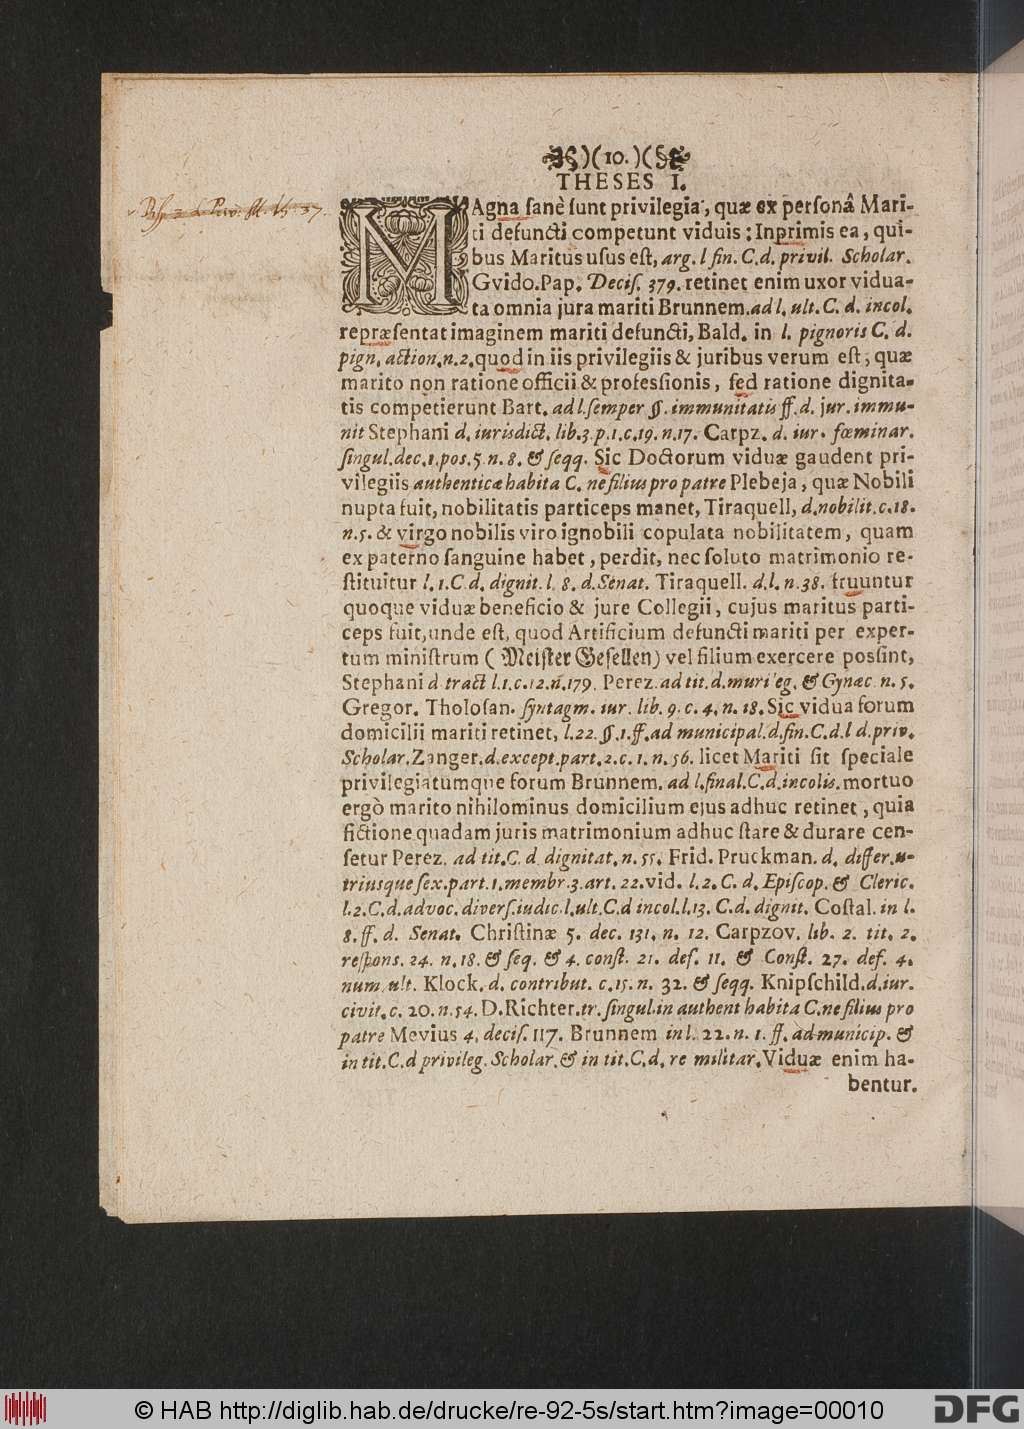 )(10.)(
THESES I.
MAgna sanè sunt privilegia, quæ ex personâ Mari-
ti defuncti competunt viduis: Inprimis ea, qui-
bus Maritus usus est, arg. l fin. C. d. privil. Scholar.
Gvido. Pap. Decis. 379. retinet enim uxor vidua-
ta omnia jura mariti Brunnem. ad l. ult. C. d. incol.
repræsentat imaginem mariti defuncti, Bald. in l. pignoris C. d.
pign. action. n. 2. quod in iis privilegiis & juribus verum est, quæ
marito non ratione officii & professionis, sed ratione dignita-
tis competierunt Bart. ad l. semper §. immunitatis ff. d. jur. immu-
nit Stephani d. iurisdict. lib. 3. p. 1. c. 19. n. 17. Carpz. d. iur. fœminar.
singul. dec. 1. pos. 5. n. 8. & seqq. Sic Doctorum viduæ gaudent pri-
vilegiis authenticæ habita C. ne filius pro patre Plebeja, quæ Nobili
nupta fuit, nobilitatis particeps manet, Tiraquell, d. nobilit. c. 18.
n. 5. & virgo nobilis viro ignobili copulata nobilitatem, quam
ex paterno sanguine habet, perdit, nec soluto matrimonio re-
stituitur l. 1. C. d. dignit. l. 8. d. Senat. Tiraquell. d. l. n. 38. fruuntur
quoque viduæ beneficio & jure Collegii, cujus maritus parti-
ceps fuit, unde est, quod Artificium defuncti mariti per exper-
tum ministrum (Meister Gesellen) vel filium exercere possint,
Stephani d. tract l. 1. c. 12. n. 179. Perez. ad tit. d. murileg. & Gynæc. n. 5.
Gregor. Tholosan. syntagm. iur. lib. 9. c. 4. n. 18. Sic vidua forum
domicilii mariti retinet, l. 22. §. 1. ff. ad municipal. d. fin. C. d. l d. priv.
Scholar. Zanger. d. except. part. 2. c. 1. n. 56. licet Mariti sit speciale
privilegiatumque forum Brunnem. ad l. final. C. d. incolis. mortuo
ergò marito nihilominus domicilium ejus adhuc retinet, quia
fictione quadam juris matrimonium adhuc stare & durare cen-
setur Perez. ad tit. C. d. dignitat. n. 55. Frid. Pruckman. d. differ. u-
triusque sex. part. 1. membr. 3. art. 22. vid. l. 2. C. d. Episcop. & Cleric.
l. 2. C. d. advoc. divers. iudic. l. ult. C. d incol. l. 13. C. d. dignit. Costal. in l.
8. ff. d. Senat. Christinæ 5. dec. 131. n. 12. Carpzov. lib. 2. tit. 2.
respons. 24. n. 18. & seq. & 4. const. 21. def. 11. & Const. 27. def. 4.
num. ult. Klock. d. contribut. c. 15. n. 32. & seqq. Knipschild. d. iur.
civit. c. 20. n. 54. D. Richter. tr. singul. in authent habita C. ne filius pro
patre Mevius 4. decis. 117. Brunnem in l. 22. n. 1. ff. ad municip. &
in tit. C. d privileg. Scholar. & in tit. C. d. re militar. Viduæ enim ha-
bentur.
© HAB http://diglib.hab.de/drucke/re-92-5s/start.htm?image=00010
DFG